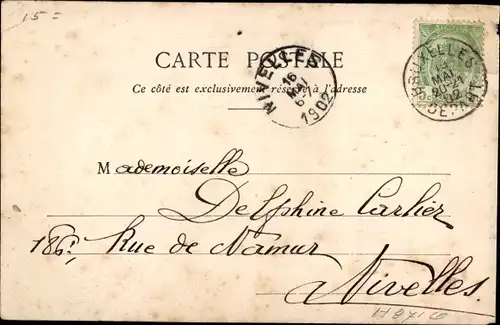 15=
CARTE POSTALE
Ce côté est exclusivement réservé à l'adresse
NIVELLES
16
MAI
6-7
1902
BRUXELLES
MAI
DEPART
Mademoiselle
Delphine Carlier
Rue de Namur
Nivelles